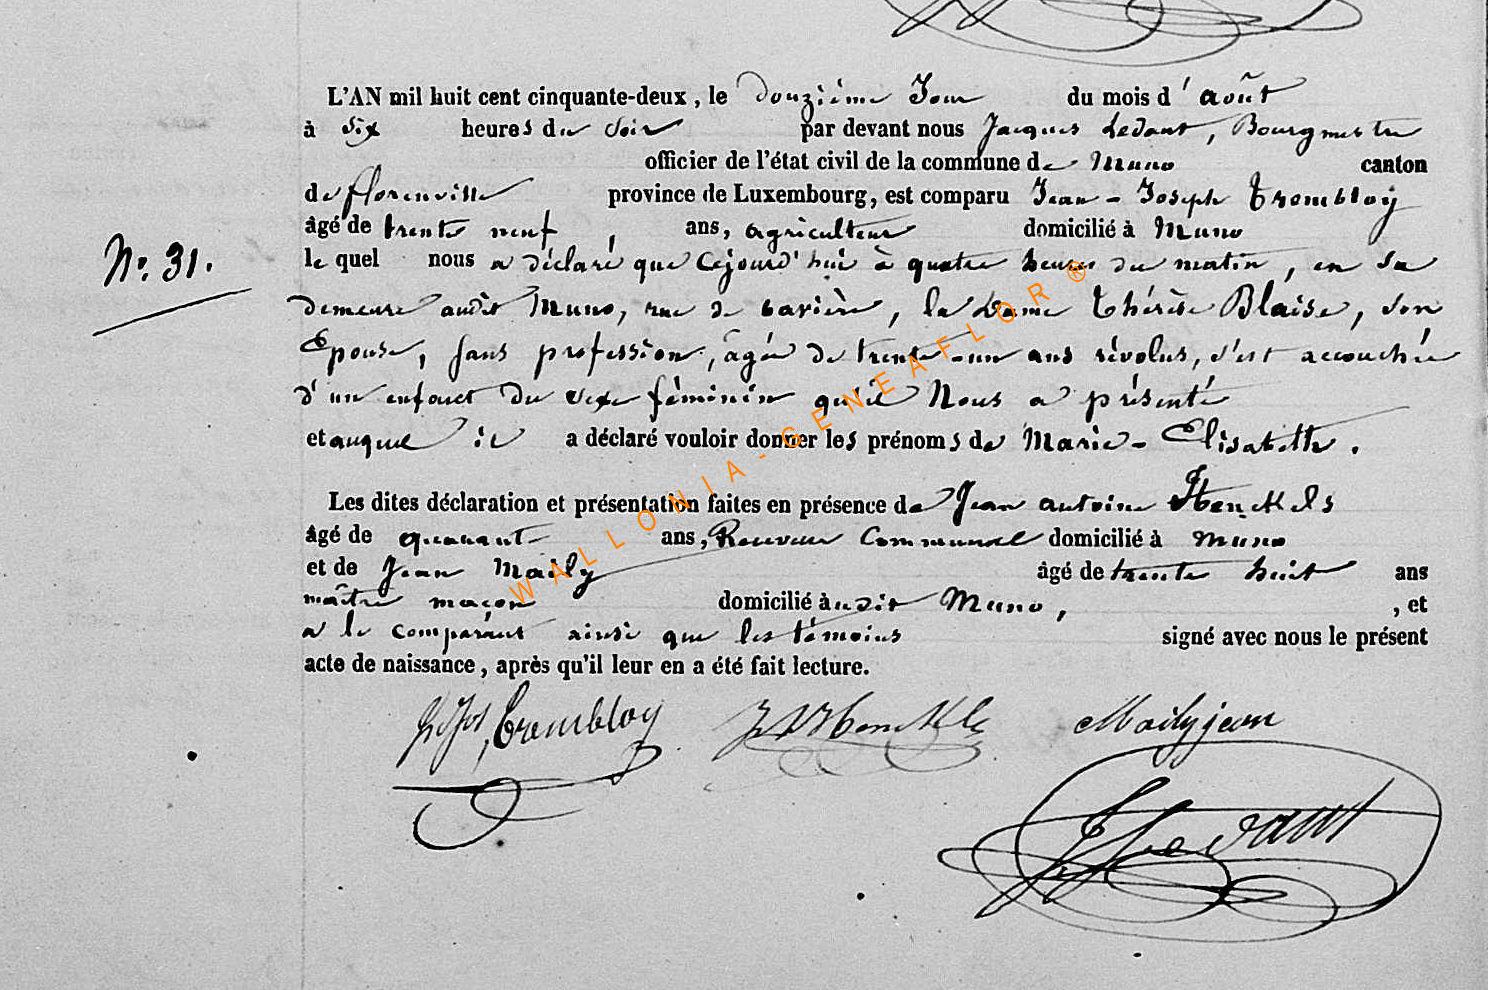 L'AN mil huit cent cinquante-deux, le douzième Jour du mois d'août
à six heures du soir par devant nous Jacques Ledant, Bourgmestre
officier de l'état civil de la commune de Muno canton
de florenville province de Luxembourg, est comparu Jean-Joseph Trembloy
âgé de trente neuf, ans, agriculteur domicilié à Muno
N°. 31.
le quel nous a déclaré que cejourd'hui à quatre heures du matin, en sa
demeure audit Muno, rue de bavière, la Dame Thérèse Blaise, son
Epouse, sans profession, âgée de trente-un ans révolus, s'est accouchée
d'un enfant du sexe féminin qu'il Nous a présenté
et auquel il a déclaré vouloir donner les prénoms de Marie-Elisabeth.
Les dites déclaration et présentation faites en présence de Jean antoine Henckels
âgé de quarante ans, Receveur Communal domicilié à Muno
et de Jean Maily âgé de trente huit ans
maître maçon domicilié audit Muno, , et
a le comparant ainsi que les témoins signé avec nous le présent
acte de naissance, après qu'il leur en a été fait lecture.
Trembloy Henckels Maily jean
Ledant
WALLONIA-GENEAFLOR®